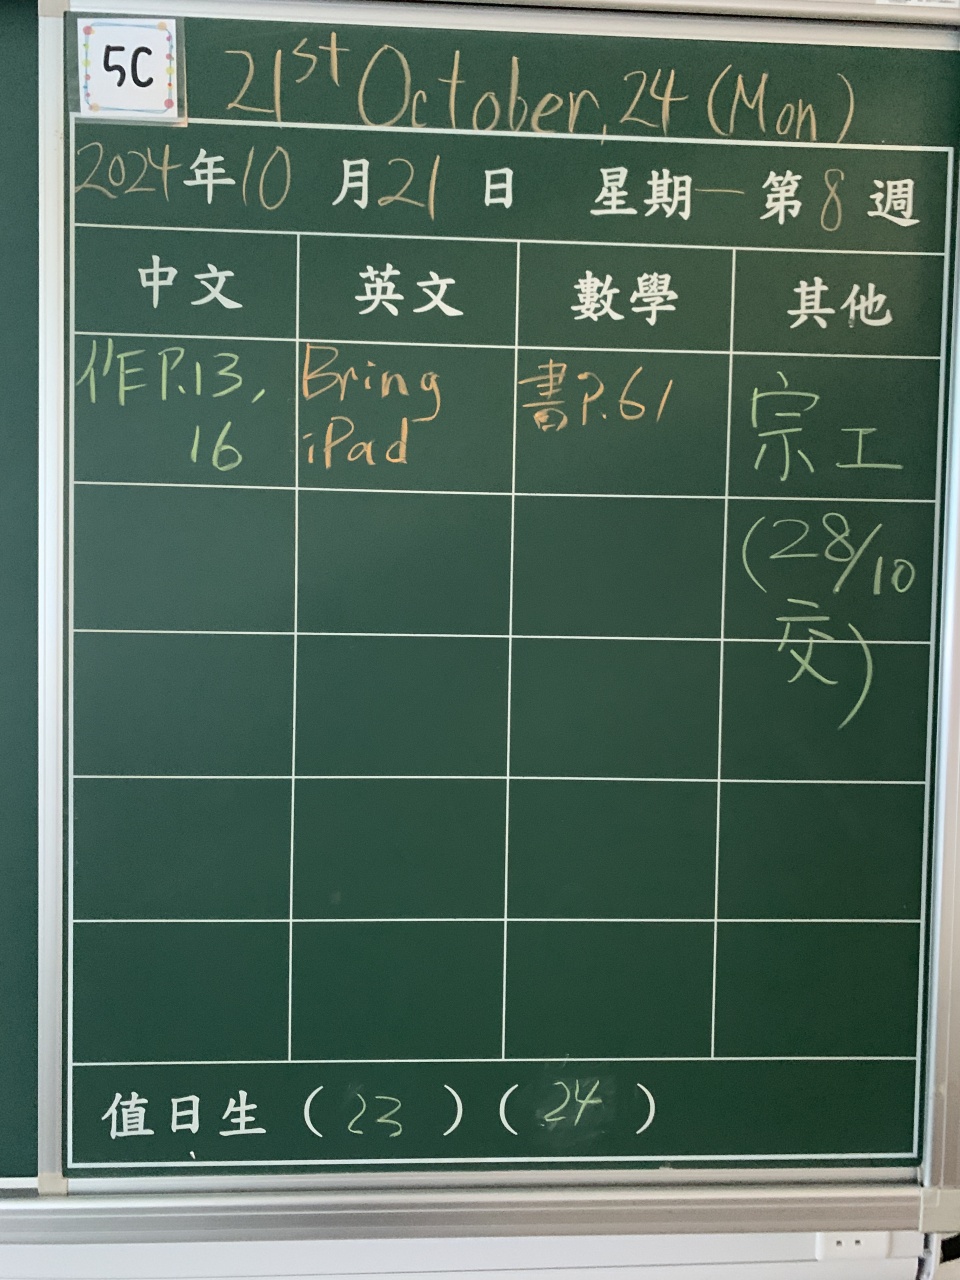 5C
21st October, 24 (Mon)
2024年10月21日 星期一 第8週
中文 英文 數學 其他
作P.13,
16
Bring
iPad
書P.61
宗工
(28/10
交)
值日生 (23) (24)